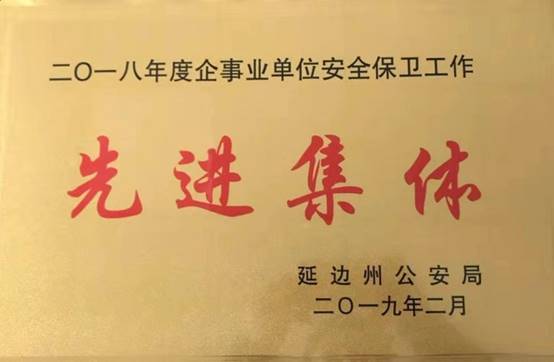 二〇一八年度企事业单位安全保卫工作
先进集体
延边州公安局
二〇一九年二月